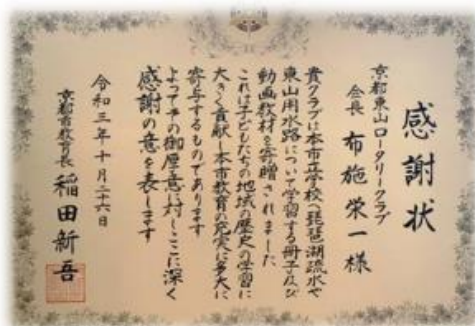 感謝状
京都東山ロータリークラブ
会長 布施栄一様
貴クラブは本市立学校へ琵琶湖疏水や
東山用水路について学習する冊子及び
動画教材を寄贈されました
これは子どもたちの地域の歴史の学習に
大きく貢献し本市教育の充実に多大に
寄与するものであります
よってその御厚意に対しここに深く
感謝の意を表します
令和三年十月二十六日
京都市教育長 稲田新吾